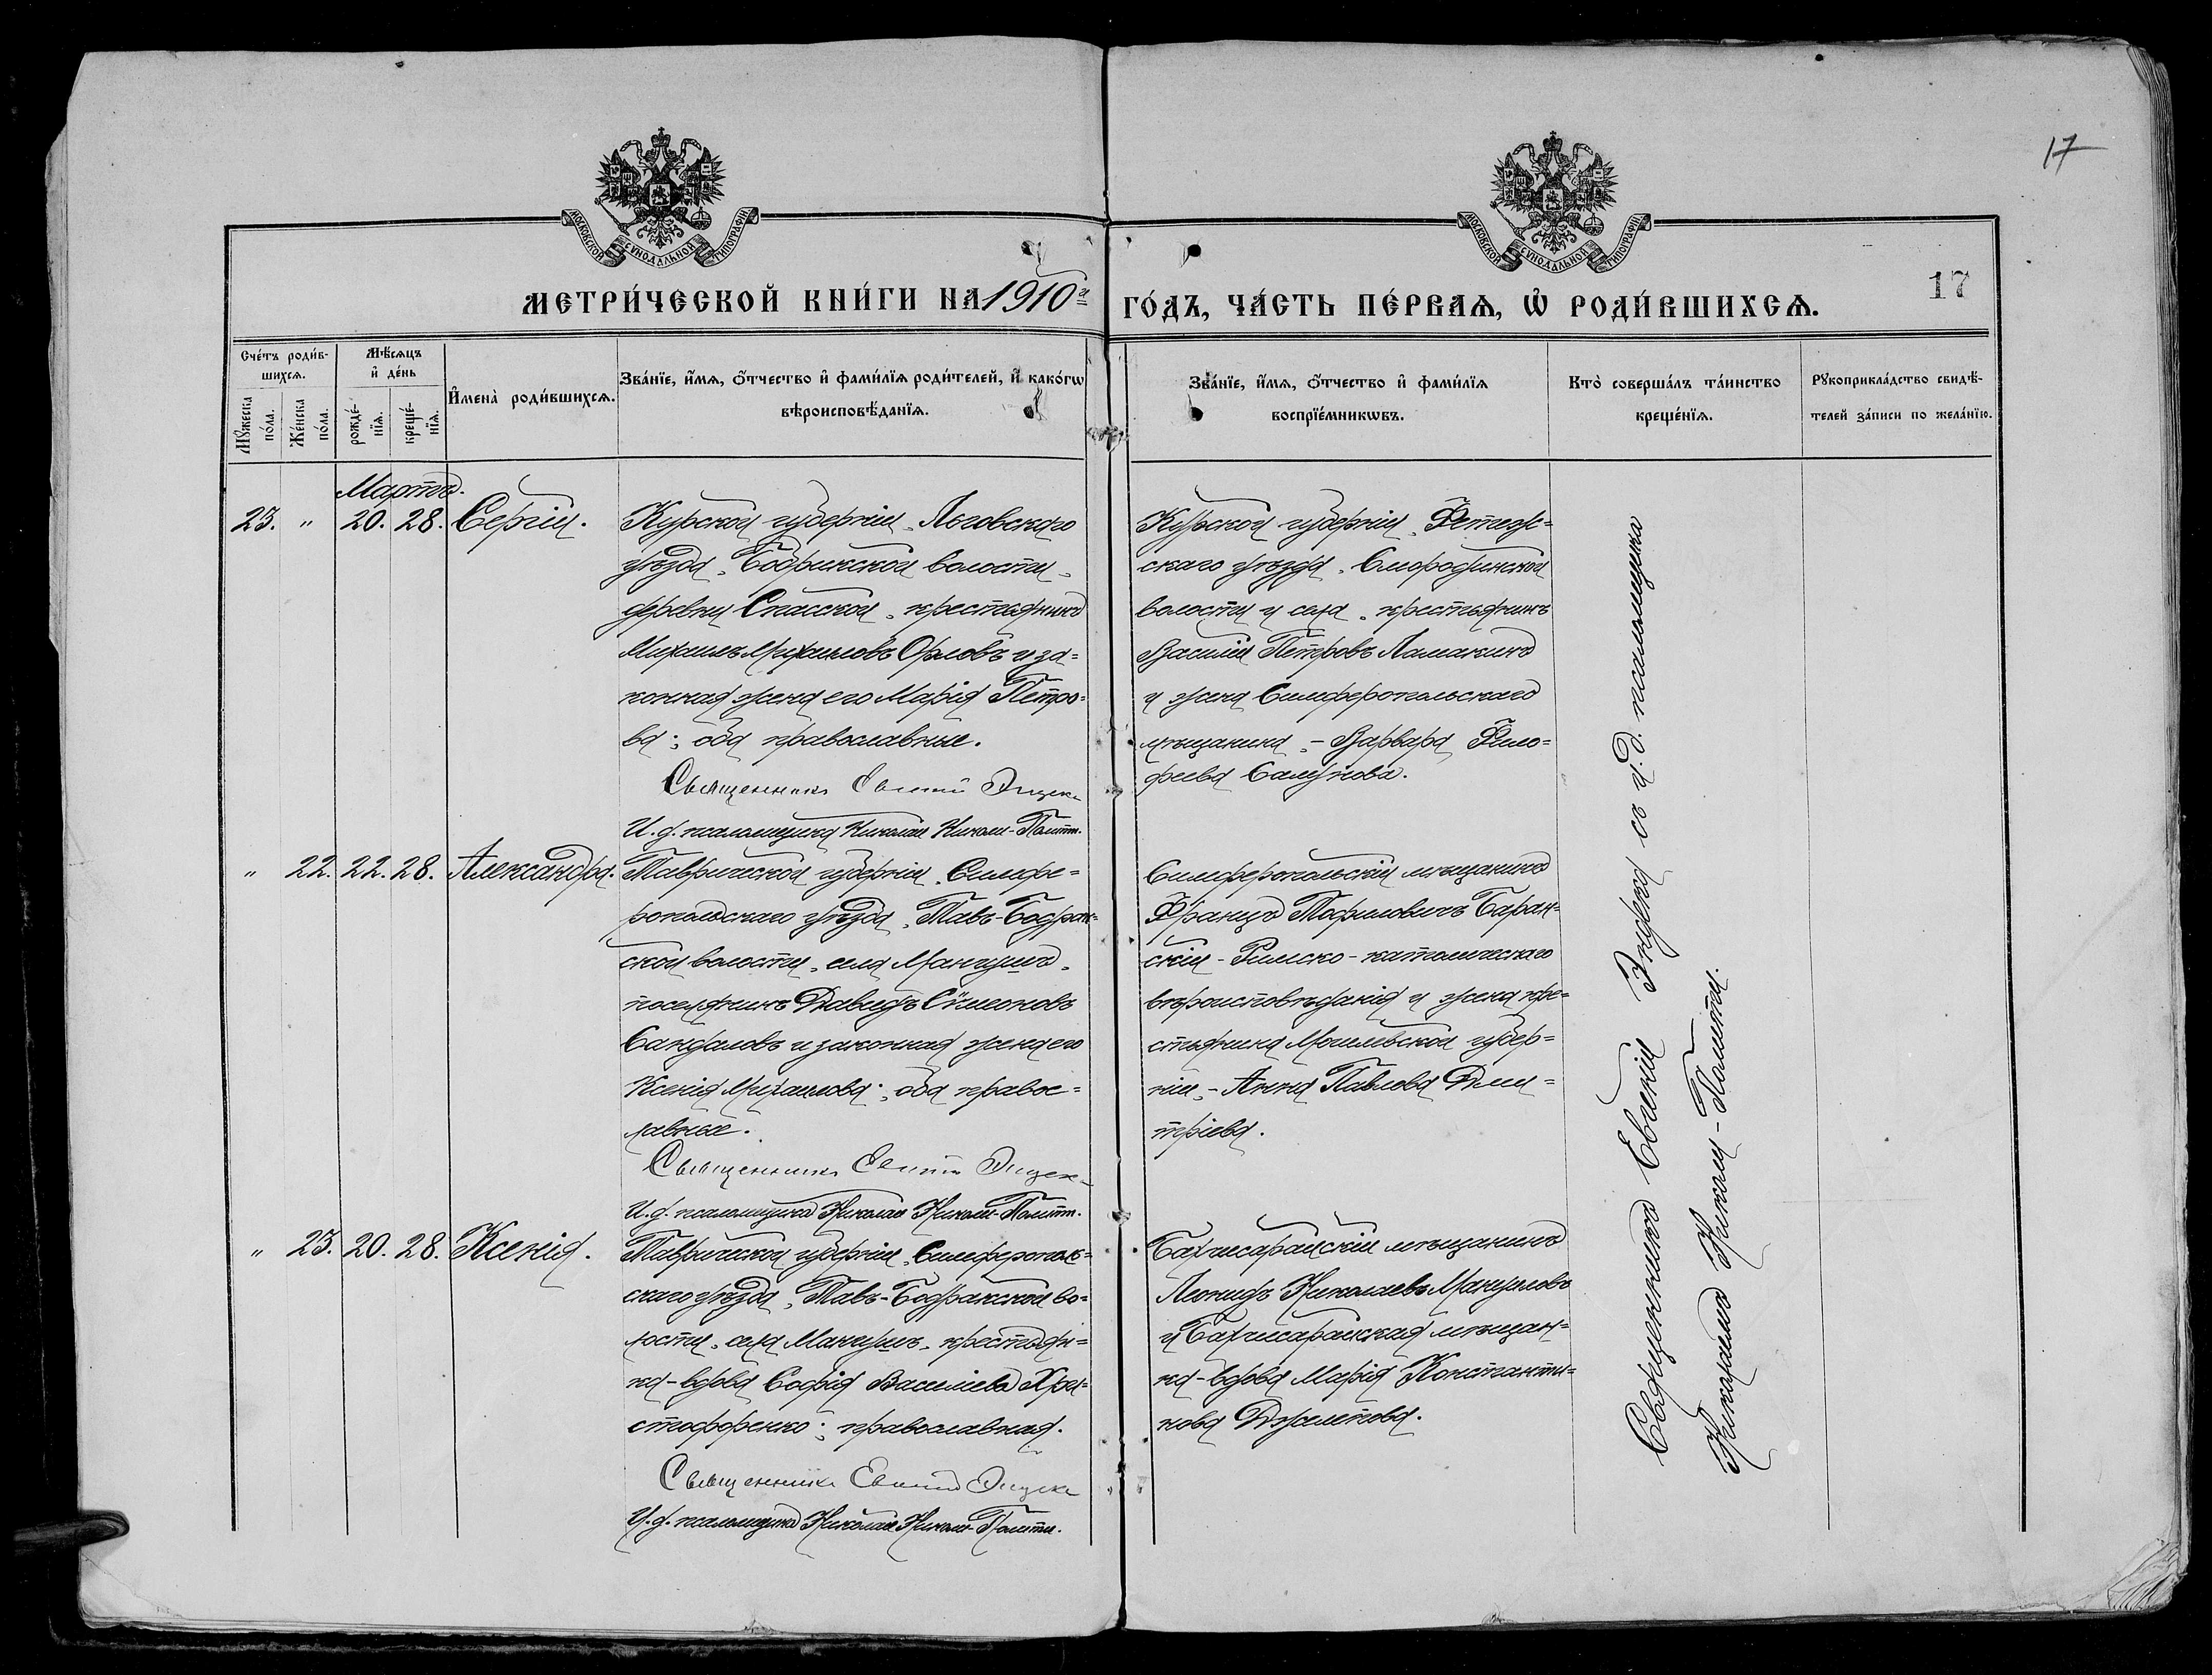 17
МОСКОВСКОЙ СѴНОДАЛЬНОЙ ТИПОГРАФІИ
МОСКОВСКОЙ СѴНОДАЛЬНОЙ ТИПОГРАФІИ
17
МЕТРИ́ЧЕСКОЙ КНИ́ГИ НА 1910й ГО́ДЪ, ЧА́СТЬ ПЕ́РВАѦ, Ѡ҆ РОДИ́ВШИХСѦ.
Сче́тъ роди́в-
шихсѧ.
Мꙋ́жеска
по́ла.
Же́нска
по́ла.
Мѣ́сѧцъ
и҆ де́нь
рожде́-
нїѧ.
креще́-
нїѧ.
И҆мена̀ роди́вшихсѧ.
Зва́нїе, и҆́мѧ, ѻ҆́тчество и҆ фами́лїѧ роди́телей, и҆ како́гѡ
вѣроисповѣ́данїѧ.
Зва́нїе, и҆́мѧ, ѻ҆́тчество и҆ фами́лїѧ
воспрїе́мникѡвъ.
Кто̀ соверша́лъ та́инство
креще́нїѧ.
Рꙋкоприкла́дство свидѣ́-
телей за́писи по жела́нїю.
Мартъ.
23. " 20. 28. Сергій.
Курской губерніи, Льговскаго
уѣзда, Бобрикской волости,
деревни Спасской, крестьянинъ
Михаилъ Михаиловъ Орловъ и за=
конная жена его Марія Петро=
ва; оба православные.
Священникъ Евгеній Эндека
И. д. псаломщика Николай Николи-Политі.
Курской губерніи, Фатеж=
скаго уѣзда, Смородинской
волости и села, крестьянинъ
Василій Петровъ Ламакинъ
и жена Симферопольскаго
мѣщанина, - Варвара Фило=
феева
" 22. 22. 28. Александра.
Таврической губерніи, Симфе=
ропольскаго уѣзда, Тавъ-Бодрак=
ской волости, села Мангушъ,
поселянинъ Давидъ Сѵмеоновъ
Сандаловъ и законная жена его
Ксенія Михаилова; оба правос=
лавные.
Священникъ Евгеній Эндека
И. д. псаломщика Николай Николи-Политі.
Симферопольскій мѣщанинъ
Францъ Теофиловичъ Баран=
скій - Римско-католическаго
вѣроисповѣданія и жена кре=
стьянина Могилевской губер=
ніи, - Анна Павлова Дми=
тріева.
" 23. 20. 28. Ксенія.
Таврической губерніи, Симферополь=
скаго уѣзда, Тавъ-Бодракской во=
лости, села Мангушъ, крестьян=
ка-вдова Софія Василіева Хри=
стофоренко; православная.
Священникъ Евгеній Эндека
И. д. псаломщика Николай Николи-Политі.
Бахчисарайскій мѣщанинъ
Леонидъ Николаевъ Мангуловъ
и Бахчисарайская мѣщан=
ка-вдова Марія Константи=
нова
Священникъ Евгеній Эндека съ и. д. псаломщика
Николаемъ Николи-Политі.